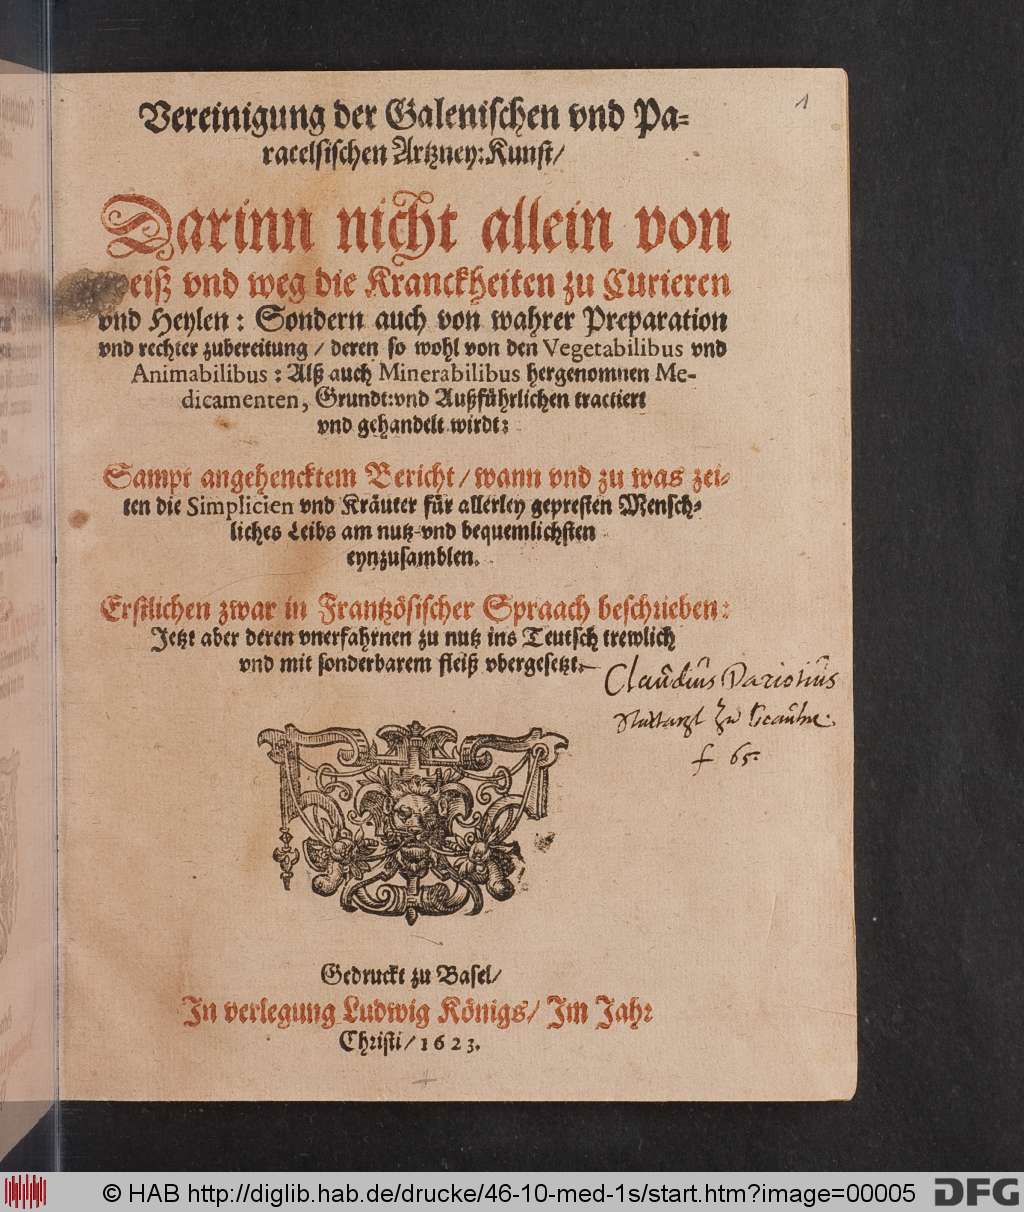 1
Vereinigung der Galenischen vnd Pa-
racelsischen Artzney:Kunst/
Darinn nicht allein von
weiß vnd weg die Kranckheiten zu Curieren
vnd Heylen: Sondern auch von wahrer Preparation
vnd rechter zubereitung/ deren so wohl von den Vegetabilibus vnd
Animabilibus: Alß auch Minerabilibus hergenomnen Me-
dicamenten, Grundt:vnd Außführlichen tractiert
vnd gehandelt wirdt:
Sampt angehencktem Bericht/ wann vnd zu was zei-
ten die Simplicien vnd Kräuter für allerley gepresten Mensch-
liches Leibs am nutz-vnd bequemlichsten
eynzusamblen.
Erstlichen zwar in Frantzösischer Spraach beschrieben:
Jetzt aber deren vnerfahrnen zu nutz ins Teutsch trewlich
vnd mit sonderbarem fleiß vbergesetzt.
Claudius Dariotius
zu
65.
Gedruckt zu Basel/
In verlegung Ludwig Königs/ Im Jahr
Christi/ 1623.
© HAB http://diglib.hab.de/drucke/46-10-med-1s/start.htm?image=00005
DFG